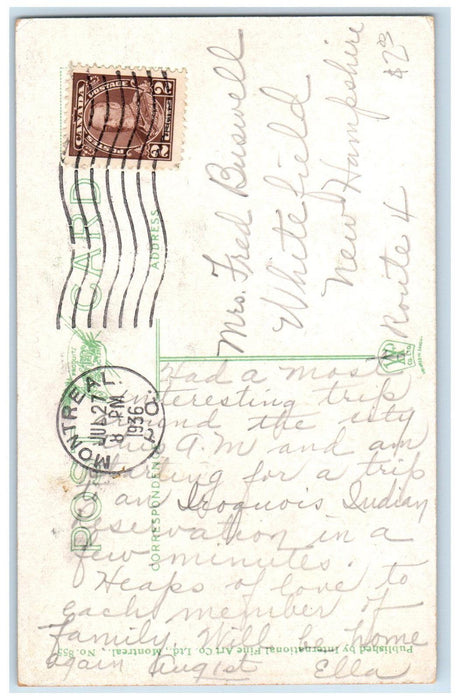 CANADA
POSTAGE POSTES
2 CENTS 2
POST CARD
ADDRESS
CORRESPONDENCE
MONTREAL
JUL 27
8 PM
1936
P.Q.
$2.00
Mrs. Fred Buswell
Whitefield
New Hampshire
Route 4
Had a most
interesting trip
around the city
this A.M and am
waiting for a trip
to an Iroquois Indian
reservation in a
few minutes.
Heaps of love to
each member of
family. Will be home
again Aug 1st Ella
Published by International Fine Art Co. Ltd., Montreal, No. 855